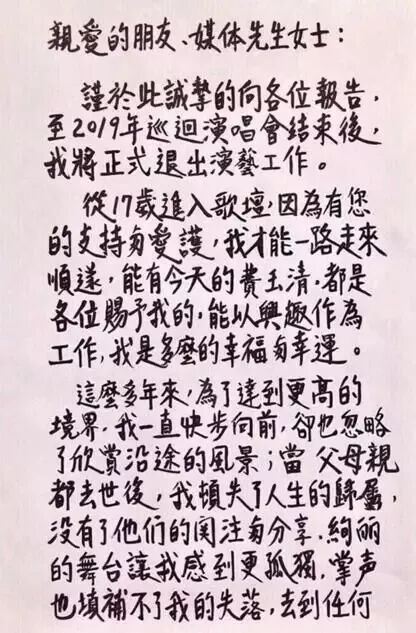 親愛的朋友、媒体先生女士：
謹於此誠摯的向各位報告，
至2019年巡迴演唱會結束後，
我將正式退出演藝工作。
從17歲進入歌壇，因為有您
的支持與愛護，我才能一路走來
順遂，能有今天的費玉清，都是
各位賜予我的，能以興趣作為
工作，我是多麼的幸福與幸運。
這麼多年來，為了達到更高的
境界，我一直快步向前，卻也忽略
了欣賞沿途的風景；當 父母親
都去世後，我頓失了人生的歸屬，
没有了他們的関注與分享，絢麗
的舞台讓我感到更孤獨，掌声
也填補不了我的失落，去到任何